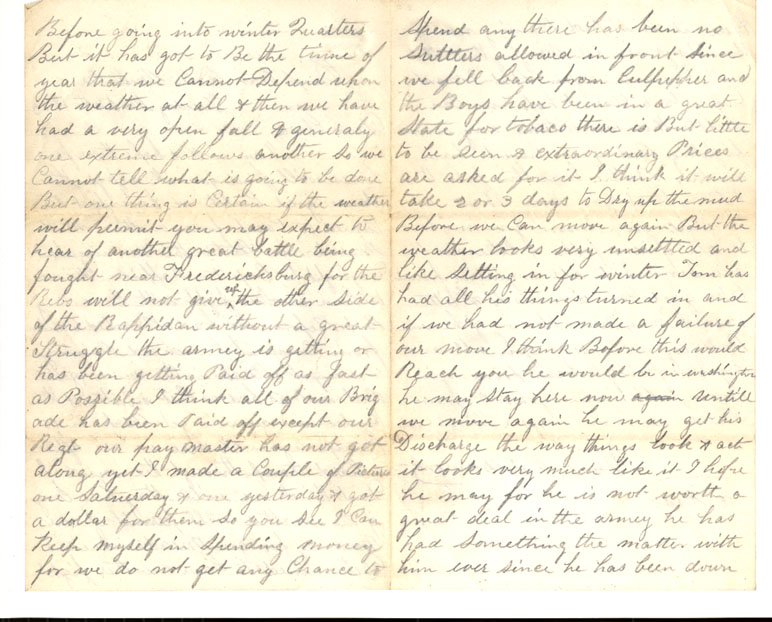 Before going into winter Quarters
But it has got to Be the time of
year that we Cannot Depend upon
the weather at all & then we have
had a very open fall & generaly
one extreme follows another So we
Cannot tell what is going to be done
But one thing is Certain if the weather
will permit you may expect to
hear of another great battle being
fought near Fredericksburg for the
Rebs will not give up the other side
of the Rappidan without a great
Struggle the armey is getting or
has been getting Paid off as fast
as Possible I think all of our Brig
ade has been Paid off except our
Regt our pay master has not got
along yet I made a Couple of Pictures
one Saturday & one yesterday & got
a dollar for them So you See I Can
Keep myself in Spending money
for we do not get any Chance to
Spend any there has been no
Suttlers allowed in front Since
we fell back from Culpepper and
the Boys have been in a great
State for tobaco there is But little
to be Seen & extraordinary Prices
are asked for it I think it will
take 2 or 3 days to Dry up the mud
Before we Can move again But the
weather looks very unsettled and
like Setting in for winter Tom has
had all his things turned in and
if we had not made a failure of
our move I think Before this would
Reach you he would be in washington
he may Stay here now again untill
we move again he may get his
Discharge the way things look & act
it looks very much like it I hope
he may for he is not worth a
great deal in the armey he has
had Something the matter with
him ever since he has been down